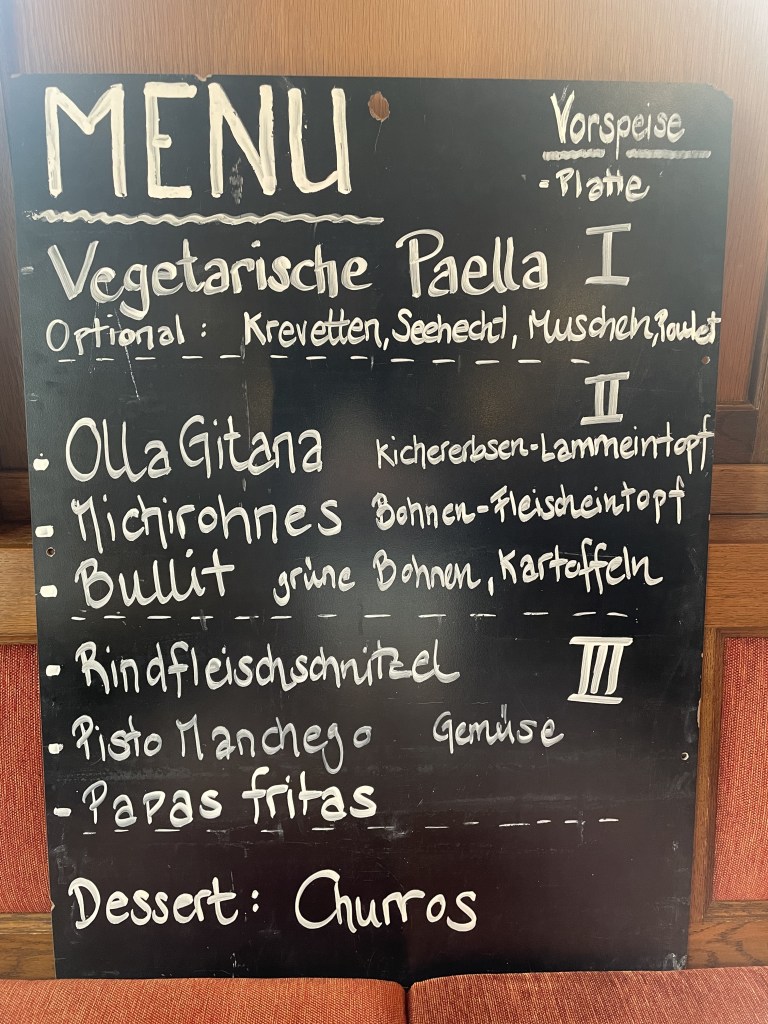 MENU
Vorspeise
- Platte
Vegetarische Paella I
Optional: Krevetten, Seehecht, Muscheln, Poulet
II
- Olla Gitana Kichererbsen-Lammeintopf
- Michirohnes Bohnen-Fleischeintopf
- Bullit grüne Bohnen, Kartoffeln
- Rindfleischschnitzel III
- Pisto Manchego Gemüse
- Papas fritas
Dessert: Churros